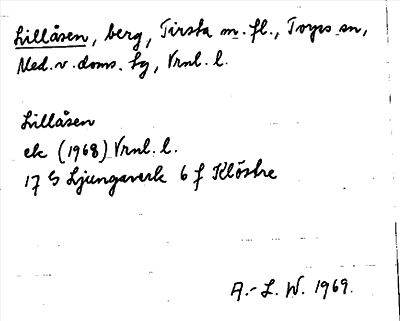 Lillåsen, berg, Tirsta m. fl., Torps sn,
Med. v. doms. hg, Vrnl. l.
Lillåsen
ek (1968) Vrnl. l.
17 G Ljungaverk 6 f Klöstre
A.-L. W. 1969.